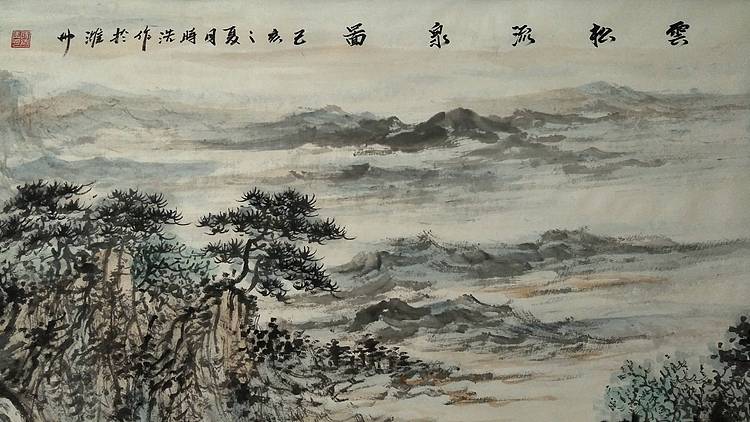 雲松流泉圖 己亥之夏月時浩作於濰州